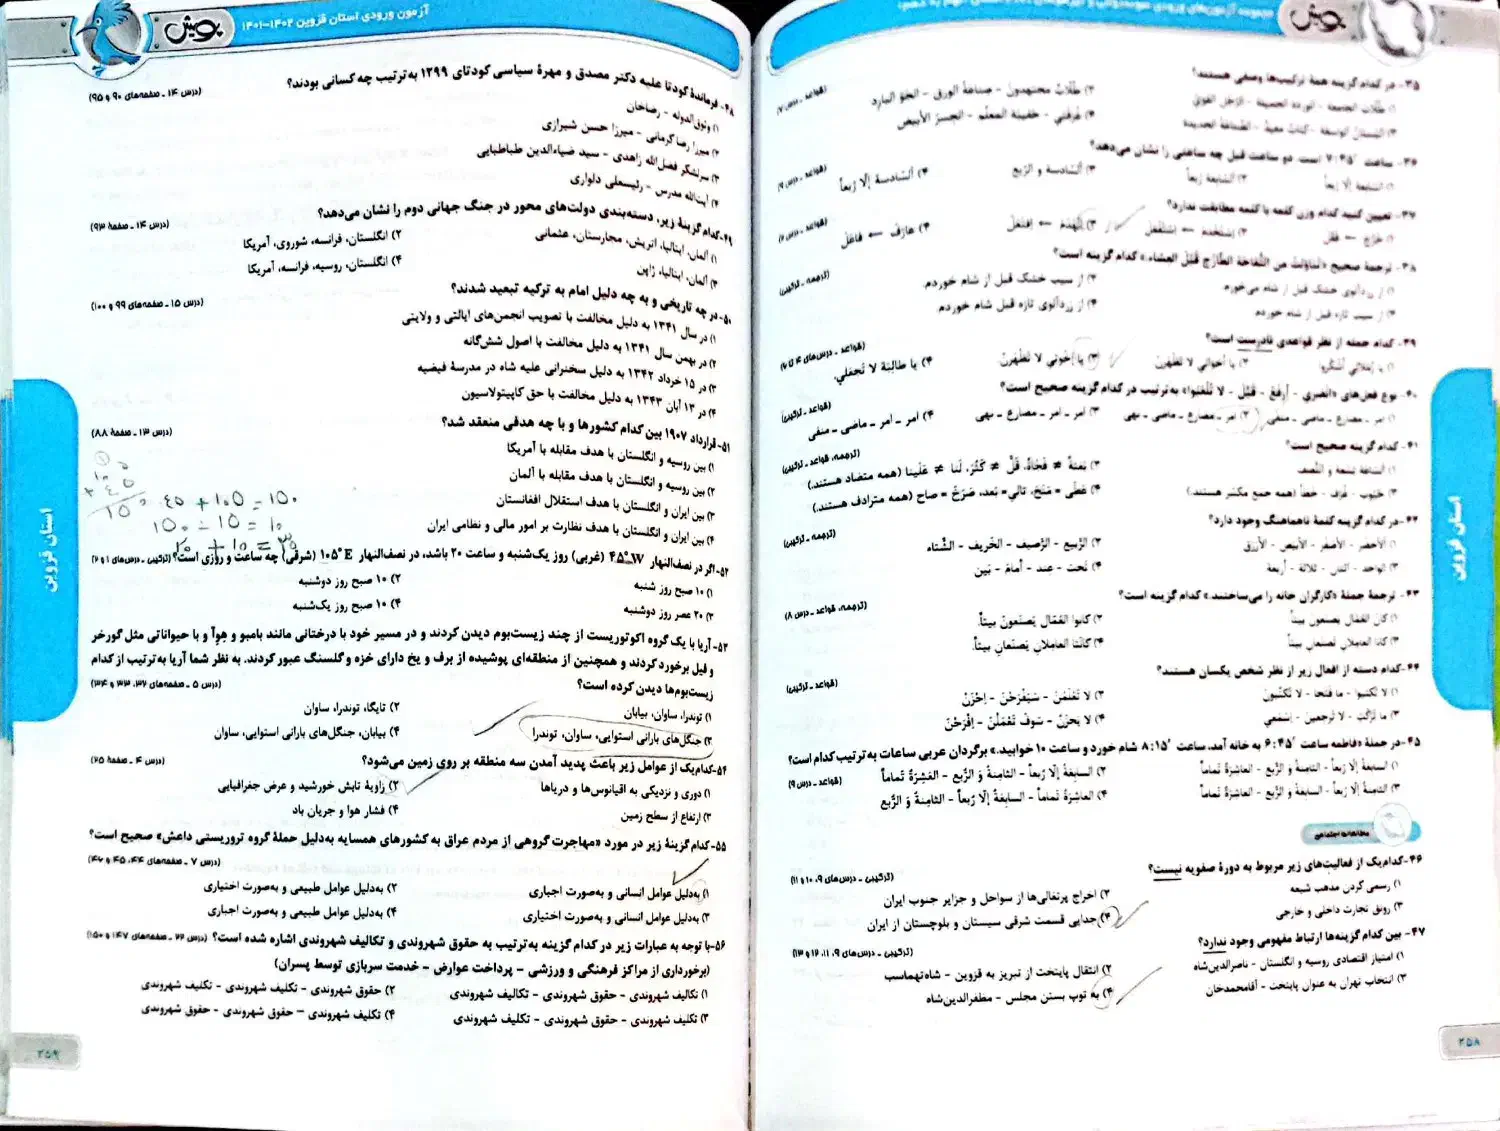 بویش
۳۵- در کدام گزینه همهٔ ترکیب‌ها وصفی هستند؟
(قواعد ـ درس ۷)
۲) طُلّابٌ مجتهدون - صناعة الورق - الجوّ البارِد
۴) غُرفَتي - حقیبة المعلّم - الجسرُ الأبیض
۳۶- ساعت ۷:۴۵′ است. دو ساعت قبل چه ساعتی را نشان می‌دهد؟
(قواعد ـ درس ۹)
۱) السّابعة إلّا رُبعاً
۲) السّابعة رُبعاً
۳) السّادسة و الرّبع
۴) السّادسة إلّا رُبعاً
۳۷- تعیین کنید کدام وزن کلمه با کلمه مطابقت ندارد؟
۴) عارَفَ ← فاعَلَ
۳۸- ترجمهٔ صحیح «تناوَلتُ مِنَ التُّفّاحَةِ الطّازَجِ قَبْلَ العشاء.» کدام گزینه است؟
(ترجمه، ترکیبی)
۱) از زردآلوی خشک قبل از شام می‌خورم.
۲) از سیب خشک قبل از شام خوردم.
۳) از سیب تازه قبل از شام خوردم.
۴) از زردآلوی تازه قبل شام خوردم.
۳۹- کدام جمله از نظر قواعدی نادرست است؟
(قواعد ـ درس‌های ۴ تا ۶)
۲) یا أخواتي لا تَظْهَرنَ
۳) یا إخوَتي لا تَظْهَرْنَ.
۴) یا طالِبَةُ لا تَحمَلي.
(قواعد ـ ترکیبی)
۱) امر ـ مضارع ـ ماضی ـ منفی
۲) امر ـ مضارع ـ ماضی ـ نهی
۳) امر ـ امر ـ مضارع ـ نهی
۴) امر ـ امر ـ ماضی ـ منفی
۴۱- کدام گزینه صحیح است؟
(ترجمه، قواعد ـ ترکیبی)
۲) بَغتةً ≠ فَجأةً، قَلَّ ≠ کَثُرَ، لَنا ≠ عَلَینا (همه متضاد هستند.)
۴) أعطی = مَنَحَ، تالي = بَعد، صَرَخَ = صاح (همه مترادف هستند.)
۴۲- در کدام گزینه کلمهٔ ناهماهنگ وجود دارد؟
(ترجمه ـ ترکیبی)
۱) الأخضر - الأصفر - الأبیض - الأزرق
۲) الرَّبیع - الرَّصیف - الخَریف - الشِّتاء
۴) تَحت - عِند - أمامَ - بَین
۴۳- ترجمهٔ جملهٔ «کارگران خانه را می‌ساختند.» کدام گزینه است؟
(ترجمه، قواعد ـ درس ۸)
۱) کانَ العُمّال یَصنعون بیتاً
۲) کانوا العُمّال یَصنَعونَ بیتاً.
۴) کانَتا العامِلانِ یَصنَعانِ بیتاً.
۴۴- کدام دسته از افعال زیر از نظر شخص یکسان هستند؟
(قواعد ـ ترکیبی)
۲) لا تَعْلَمْنَ - سَیَفْرَحْنَ - اِحْزَنْ
۳) ما تَرَکْتِ - لا تَرجِعینَ - إسْمَعي
۴) لا یحزَن - سَوفَ تَعْمَلْنَ - اِفْرَحْنَ
۴۵- در جملهٔ «فاطمه ساعت ۶:۴۵′ به خانه آمد. ساعت ۸:۱۵′ شام خورد و ساعت ۱۰ خوابید.» برگردان عربی ساعات به ترتیب کدام است؟
(قواعد ـ درس ۹)
۱) السّابعةُ إلّا رُبعاً - الثّامِنةُ وَ الرُّبع - العاشِرَةُ تَماماً
۲) السّابعَةُ إلّا رُبعاً - الثّامِنةُ وَ الرُّبع - العَشِرَةُ تَماماً
۳) الثّامِنةُ إلّا رُبعاً - السّابعَةُ و الرُّبع - العاشِرَةُ تماماً
۴) العاشِرَةُ تَماماً - السّابعَةُ إلّا رُبعاً - الثّامِنَةُ وَ الرُّبع
مطالعات اجتماعی
۴۶- کدام‌یک از فعالیت‌های زیر مربوط به دورهٔ صفویه نیست؟
(ترکیبی ـ درس‌های ۹، ۱۰ و ۱۱)
۱) رسمی کردن مذهب شیعه
۲) اخراج پرتغالی‌ها از سواحل و جزایر جنوب ایران
۳) رونق تجارت داخلی و خارجی
۴) جدایی قسمت شرقی سیستان و بلوچستان از ایران
۴۷- بین کدام گزینه‌ها ارتباط مفهومی وجود ندارد؟
(ترکیبی ـ درس‌های ۹، ۱۱، ۱۲ و ۱۳)
۱) امتیاز اقتصادی روسیه و انگلستان - ناصرالدین‌شاه
۲) انتقال پایتخت از تبریز به قزوین - شاه‌تهماسب
۳) انتخاب تهران به عنوان پایتخت - آقامحمدخان
۴) به توپ بستن مجلس - مظفرالدین‌شاه
استان قزوین
۲۵۸
آزمون ورودی استان قزوین ۱۴۰۲-۱۴۰۱
بویش
۴۸- فرماندهٔ کودتا علیه دکتر مصدق و مهرهٔ سیاسی کودتای ۱۲۹۹ به‌ترتیب چه کسانی بودند؟
(درس ۱۴ ـ صفحه‌های ۹۰ و ۹۵)
۱) وثوق‌الدوله - رضاخان
۲) میرزا رضا کرمانی - میرزا حسن شیرازی
۳) سرلشکر فضل‌الله زاهدی - سید ضیاءالدین طباطبایی
۴) آیت‌الله مدرس - رئیسعلی دلواری
۴۹- کدام گزینهٔ زیر، دسته‌بندی دولت‌های محور در جنگ جهانی دوم را نشان می‌دهد؟
(درس ۱۴ ـ صفحهٔ ۹۳)
۱) آلمان، ایتالیا، اتریش، مجارستان، عثمانی
۲) انگلستان، فرانسه، شوروی، آمریکا
۳) آلمان، ایتالیا، ژاپن
۴) انگلستان، روسیه، فرانسه، آمریکا
۵۰- در چه تاریخی و به چه دلیل امام به ترکیه تبعید شدند؟
(درس ۱۵ ـ صفحه‌های ۹۹ و ۱۰۰)
۱) در سال ۱۳۴۱ به دلیل مخالفت با تصویب انجمن‌های ایالتی و ولایتی
۲) در بهمن سال ۱۳۴۱ به دلیل مخالفت با اصول شش‌گانه
۳) در ۱۵ خرداد ۱۳۴۲ به دلیل سخنرانی علیه شاه در مدرسهٔ فیضیه
۴) در ۱۳ آبان ۱۳۴۳ به دلیل مخالفت با حق کاپیتولاسیون
۵۱- قرارداد ۱۹۰۷ بین کدام کشورها و با چه هدفی منعقد شد؟
(درس ۱۳ ـ صفحهٔ ۸۸)
۱) بین روسیه و انگلستان با هدف مقابله با آمریکا
۲) بین روسیه و انگلستان با هدف مقابله با آلمان
۳) بین ایران و انگلستان با هدف استقلال افغانستان
۴) بین ایران و انگلستان با هدف نظارت بر امور مالی و نظامی ایران
۴۵ + ۱۰۵ = ۱۵۰
۱۵۰ ÷ ۱۵ = ۱۰
۲۰ + ۱۰ = ۳۰
۵۲- اگر در نصف‌النهار ۴۵°W (غربی) روز یک‌شنبه و ساعت ۲۰ باشد، در نصف‌النهار ۱۰۵°E (شرقی) چه ساعت و روزی است؟ (ترکیبی ـ درس‌های ۱ و ۲)
۱) ۱۰ صبح روز شنبه
۲) ۱۰ صبح روز دوشنبه
۳) ۲۰ عصر روز دوشنبه
۴) ۱۰ صبح روز یک‌شنبه
۵۳- آریا با یک گروه اکوتوریست از چند زیست‌بوم دیدن کردند و در مسیر خود با درختانی مانند بامبو و هِوِآ و با حیواناتی مثل گورخر
و فیل برخورد کردند و همچنین از منطقه‌ای پوشیده از برف و یخ دارای خزه و گلسنگ عبور کردند. به نظر شما آریا به‌ترتیب از کدام
زیست‌بوم‌ها دیدن کرده است؟
(درس ۵ ـ صفحه‌های ۳۲، ۳۳ و ۳۴)
۱) توندرا، ساوان، بیابان
۲) تایگا، توندرا، ساوان
۳) جنگل‌های بارانی استوایی، ساوان، توندرا
۴) بیابان، جنگل‌های بارانی استوایی، ساوان
۵۴- کدام‌یک از عوامل زیر باعث پدید آمدن سه منطقه بر روی زمین می‌شود؟
(درس ۴ ـ صفحهٔ ۲۵)
۱) دوری و نزدیکی به اقیانوس‌ها و دریاها
۲) زاویهٔ تابش خورشید و عرض جغرافیایی
۳) ارتفاع از سطح زمین
۴) فشار هوا و جریان باد
۵۵- کدام گزینهٔ زیر در مورد «مهاجرت گروهی از مردم عراق به کشورهای همسایه به‌دلیل حملهٔ گروه تروریستی داعش» صحیح است؟
(درس ۷ ـ صفحه‌های ۴۴، ۴۵ و ۴۶)
۱) به‌دلیل عوامل انسانی و به‌صورت اجباری
۲) به‌دلیل عوامل طبیعی و به‌صورت اختیاری
۳) به‌دلیل عوامل انسانی و به‌صورت اختیاری
۴) به‌دلیل عوامل طبیعی و به‌صورت اجباری
۵۶- با توجه به عبارات زیر در کدام گزینه به‌ترتیب به حقوق شهروندی و تکالیف شهروندی اشاره شده است؟ (درس ۲۲ ـ صفحه‌های ۱۴۷ و ۱۵۰)
(برخورداری از مراکز فرهنگی و ورزشی - پرداخت عوارض - خدمت سربازی توسط پسران)
۱) تکالیف شهروندی - حقوق شهروندی - تکالیف شهروندی
۲) حقوق شهروندی - تکلیف شهروندی - تکلیف شهروندی
۳) تکلیف شهروندی - حقوق شهروندی - تکلیف شهروندی
۴) تکلیف شهروندی - حقوق شهروندی - حقوق شهروندی
استان قزوین
۲۵۹